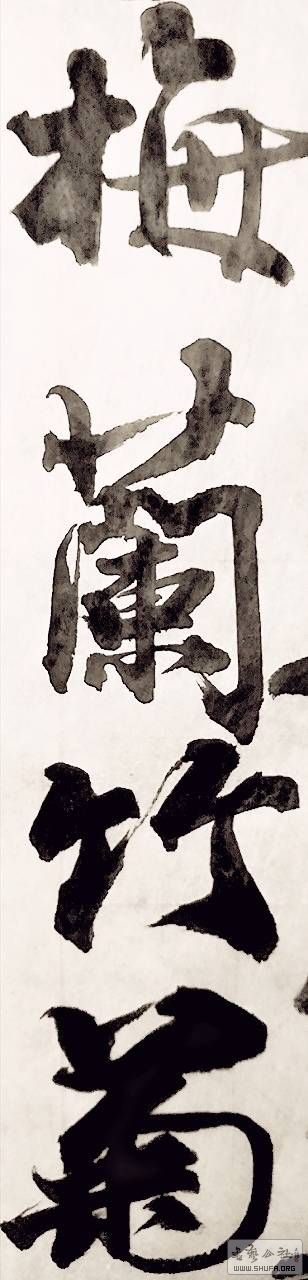 梅蘭竹菊
WWW.SHUFA.ORG